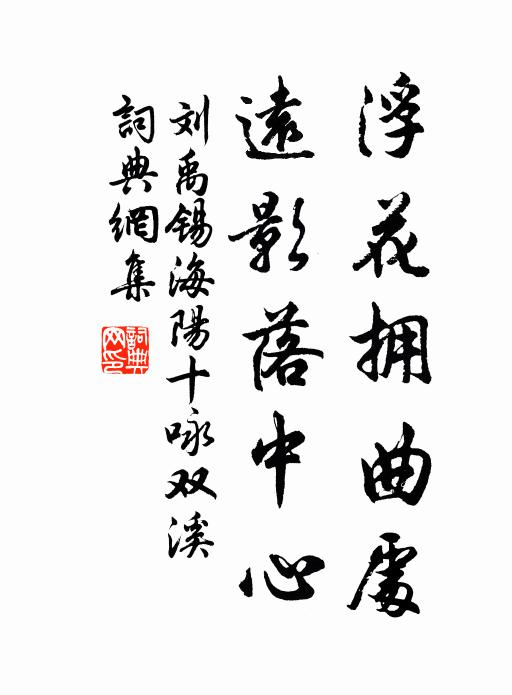 浮花拥曲處
遠影落中心
刘禹锡海陽十咏双溪
詞典網集
詞典網印